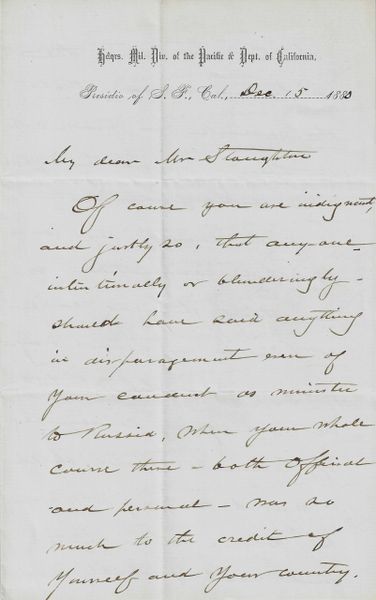 Hdqrs. Mil. Div. of the Pacific & Dept. of California.
Presidio of S. F., Cal., Dec. 15 1880
My dear Mr Stoughton
Of course you are indignant,
and justly so, that any one
intentionally or blunderingly -
should have said anything
in disparagement even of
your conduct as minister
to Russia, when your whole
course there - both official
and personal - was so
much to the credit of
yourself and your country.